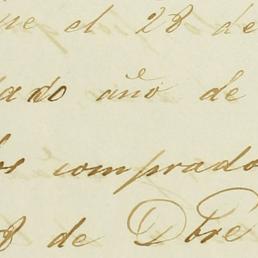 ue el 28 de
ado año de
los comprado
8 de Dbre